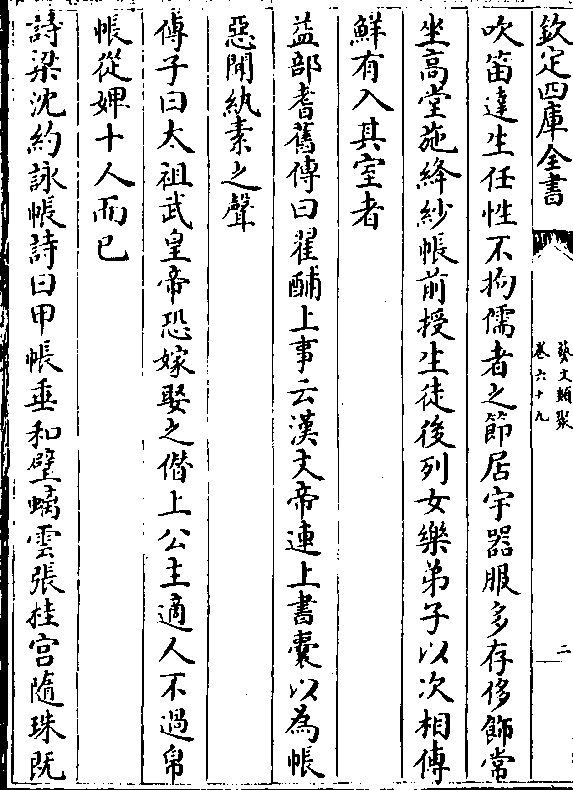 欽定四庫全書
藝文類聚
卷六十九
二
吹笛達生任性不拘儒者之節居宇器服多存侈飾常
坐高堂施絳紗帳前授生徒後列女樂弟子以次相傳
鮮有入其室者
益部耆舊傳曰翟酺上事云漢文帝連上書囊以為帳
惡聞紈素之聲
傅子曰太祖武皇帝恐嫁娶之僭上公主適人不過帛
帳從婢十人而已
詩梁沈約詠帳詩曰甲帳垂和璧螭雲張桂宫隨珠既